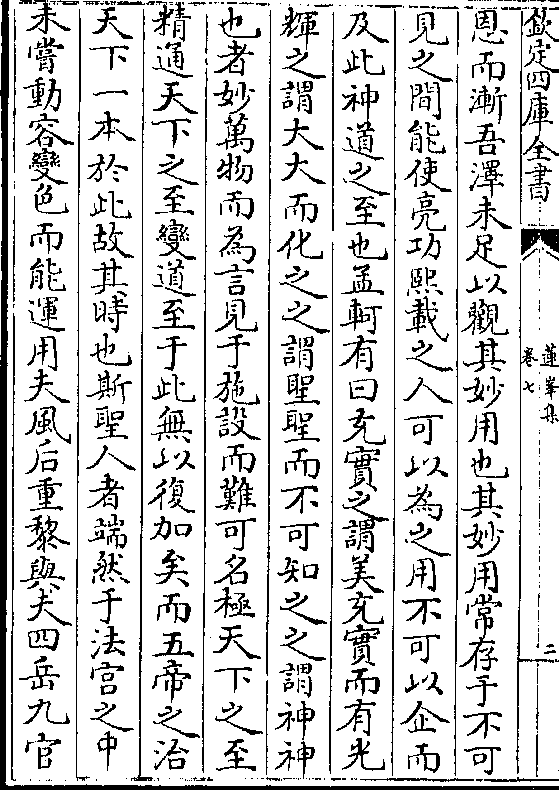 欽定四庫全書
蓮峯集
卷七
二
恩而漸吾澤未足以觀其妙用也其妙用常存乎不可
見之間能使亮功熙載之人可以為之用不可以企而
及此神道之至也孟軻有曰充實之謂美充實而有光
輝之謂大大而化之之謂聖聖而不可知之之謂神神
也者妙萬物而為言見于施設而難可名極天下之至
精通天下之至變道至于此無以復加矣而五帝之治
天下一本於此故其時也斯聖人者端然于法宮之中
未嘗動容變色而能運用夫風后重黎與夫四岳九官